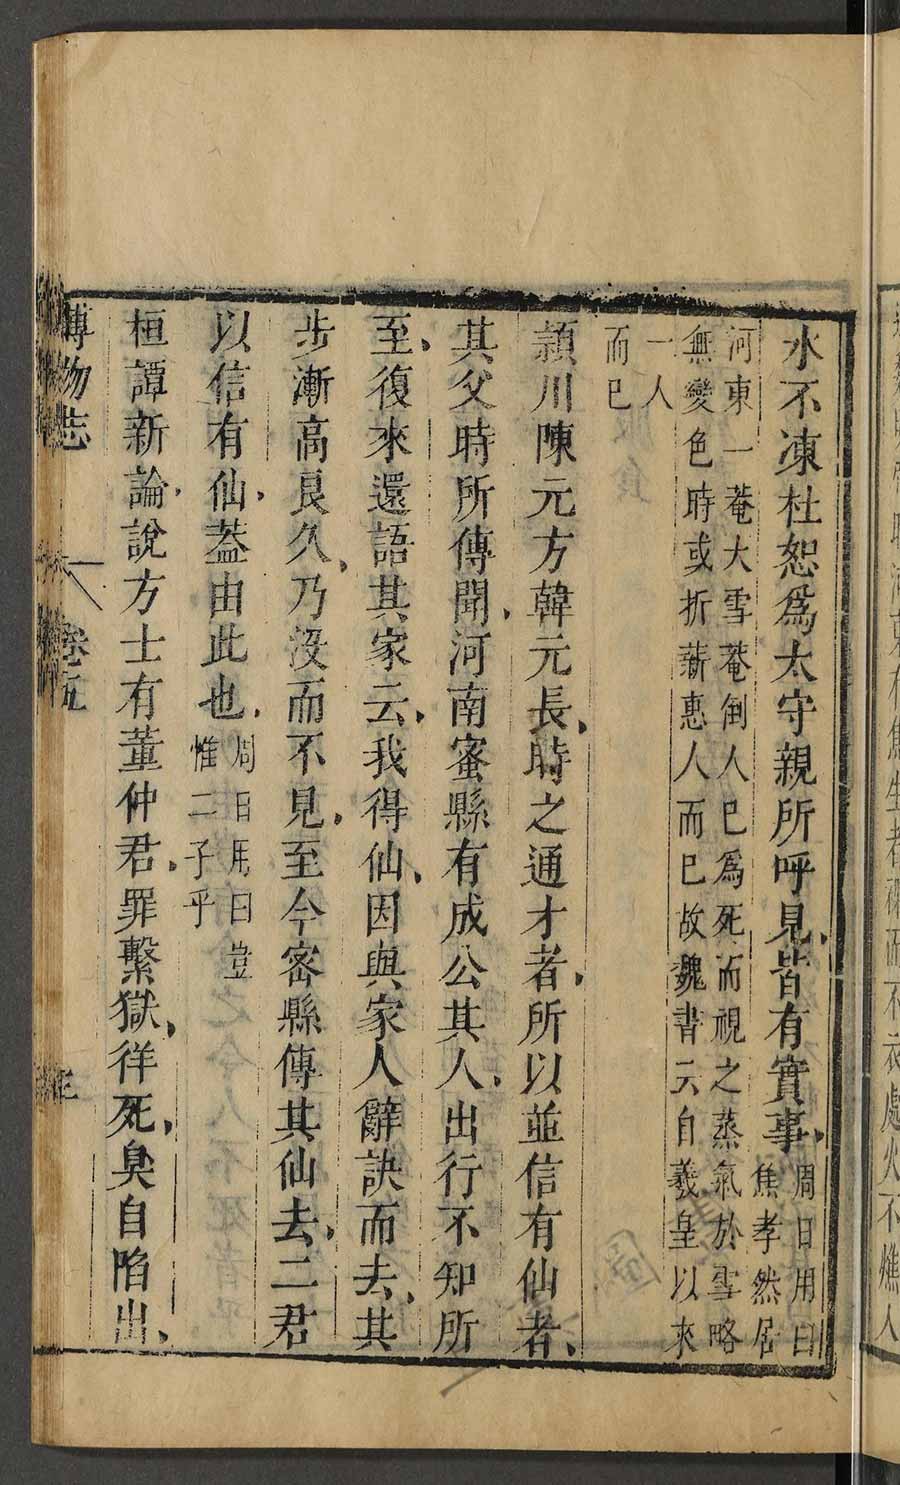 水不凍杜恕爲太守親所呼見皆有實事周日用曰焦孝然居
河東一菴大雪菴倒人已爲死而視之蒸氣於雪略
無變色時或折薪惠人而已故魏書云自羲皇以來
一人
而已
潁川陳元方韓元長時之通才者所以並信有仙者
其父時所傳聞河南蜜縣有成公其人出行不知所
至復來還語其家云我得仙因與家人辭訣而去其
步漸高良久乃沒而不見至今密縣傳其仙去二君
以信有仙葢由此也周日用曰豈惟二子乎
桓譚新論說方士有董仲君罪繫獄徉死臭自陷出
博物志
卷五
三